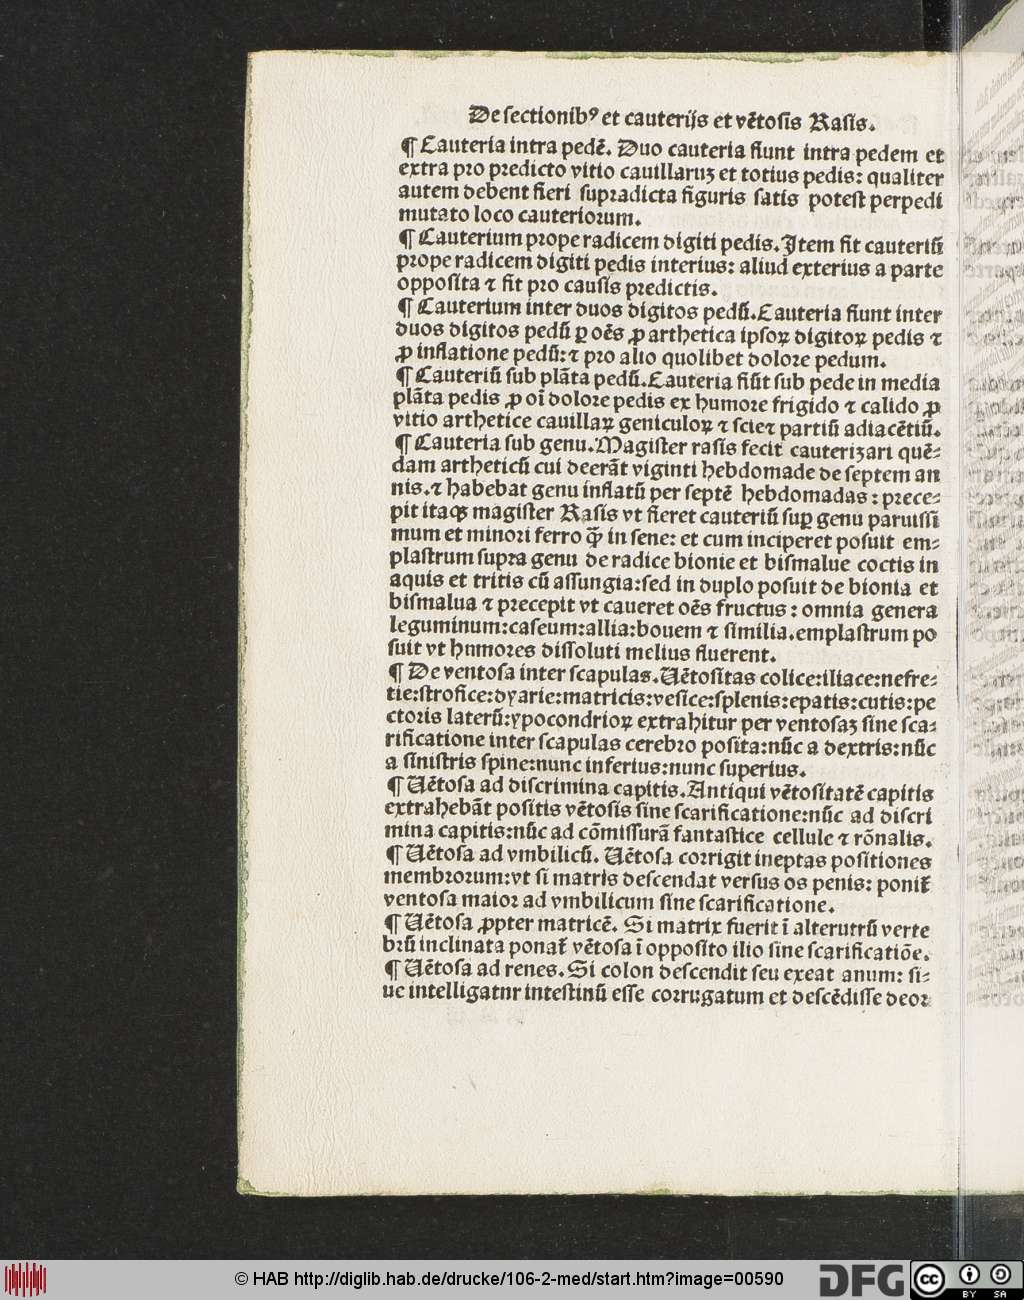 De sectionibꝰ et cauterijs et vētosis Rasis.
¶ Cauteria intra pedē. Duo cauteria fiunt intra pedem et
extra pro predicto vitio cauillaruꝫ et totius pedis: qualiter
autem debent fieri supradicta figuris satis potest perpedi
mutato loco cauteriorum.
¶ Cauterium prope radicem digiti pedis. Item fit cauteriū
prope radicem digiti pedis interius: aliud exterius a parte
opposita ⁊ fit pro causis predictis.
¶ Cauterium inter duos digitos pedū. Cauteria fiunt inter
duos digitos pedū ꝑ oēs ꝓ arthetica ipsoꝝ digitoꝝ pedis ⁊
ꝓ inflatione pedū: ⁊ pro alio quolibet dolore pedum.
¶ Cauteriū sub plāta pedū. Cauteria fiūt sub pede in media
plāta pedis ꝓ oī dolore pedis ex humore frigido ⁊ calido ꝓ
vitio arthetice cauillaꝝ geniculoꝝ ⁊ scie⁊ partiū adiacētiū.
¶ Cauteria sub genu. Magister rasis fecit cauterizari quē-
dam artheticū cui deerāt viginti hebdomade de septem an
nis. ⁊ habebat genu inflatū per septē hebdomadas: prece-
pit itaqꝫ magister Rasis vt fieret cauteriū suꝑ genu paruissi
mum et minori ferro q̄ꝫ in sene: et cum inciperet posuit em-
plastrum supra genu de radice bionie et bismalue coctis in
aquis et tritis cū assungia: sed in duplo posuit de bionia et
bismalua ⁊ precepit vt caueret oēs fructus: omnia genera
leguminum: caseum: allia: bouem ⁊ similia. emplastrum po
suit vt hnmores dissoluti melius fluerent.
¶ De ventosa inter scapulas. Uētositas colice: iliace: nefre-
tie: strofice: dyarie: matricis: vesice: splenis: epatis: cutis: pe
ctoris laterū: ypocondrioꝝ extrahitur per ventosaꝫ sine sca-
rificatione inter scapulas cerebro posita: nūc a dextris: nūc
a sinistris spine: nunc inferius: nunc superius.
¶ Uētosa ad discrimina capitis. Antiqui vētositatē capitis
extrahebāt positis vētosis sine scarificatione: nūc ad discri
mina capitis: nūc ad cōmissurā fantastice cellule ⁊ rōnalis.
¶ Uētosa ad vmbilicū. Uētosa corrigit ineptas positiones
membrorum: vt si matris descendat versus os penis: ponit̄
ventosa maior ad vmbilicum sine scarificatione.
¶ Uētosa ꝓpter matricē. Si matrix fuerit ī alterutrū verte
brū inclinata ponat̄ vētosa ī opposito ilio sine scarificatiōe.
¶ Uētosa ad renes. Si colon descendit seu exeat anum: si-
ue intelligatnr intestinū esse corrugatum et descēdisse deor
© HAB http://diglib.hab.de/drucke/106-2-med/start.htm?image=00590
DFG
cc
BY SA